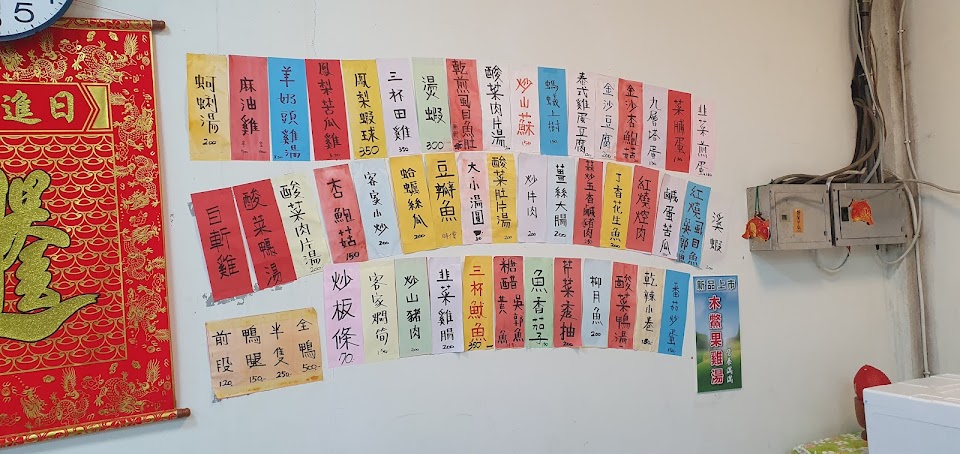 5
日進
蚵蜊湯 200
麻油雞
羊奶頭雞湯
鳳梨苦瓜雞
鳳梨蝦球 350
三杯田雞
燙蝦 300
乾煎虱目魚肚
酸菜肉片湯
炒山蘇 150
螞蟻上樹
泰式雞蛋豆腐
金沙豆腐
金沙杏鮑菇
九層塔蛋
菜脯蛋
韭菜煎蛋
白斬雞
酸菜鴨湯
酸菜肉片湯 200
杏鮑菇 150
客家小炒 200
蛤蠣絲瓜 200
豆瓣魚 時價
大小湯圓
酸菜肚片湯 200
炒牛肉 200
薑絲大腸 200
丁香花生 200
紅燒焢肉
鹹蛋苦瓜
紅燒虱目吳郭魚
溪蝦
炒板條 70
客家燜筍
炒山豬肉 200
韭菜雞腸 200
三杯魷魚
糖醋黃魚 吳郭魚
魚香茄子
芹菜杏柚 200
柳月魚 200
酸菜鴨湯
乾辣小卷 180
番茄炒蛋
前段 120
鴨腿 150
半隻 250
全鴨 500
新品上市
木虌果雞湯